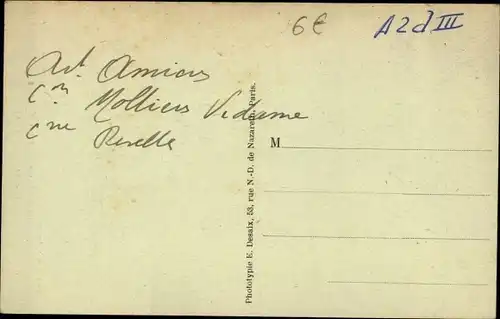 6€
A2d III
Art Amiens
Cne Molliens Vidame
Cne Revelle
M
Phototypie E. Desaix, 53, rue N.-D. de Nazareth, Paris.